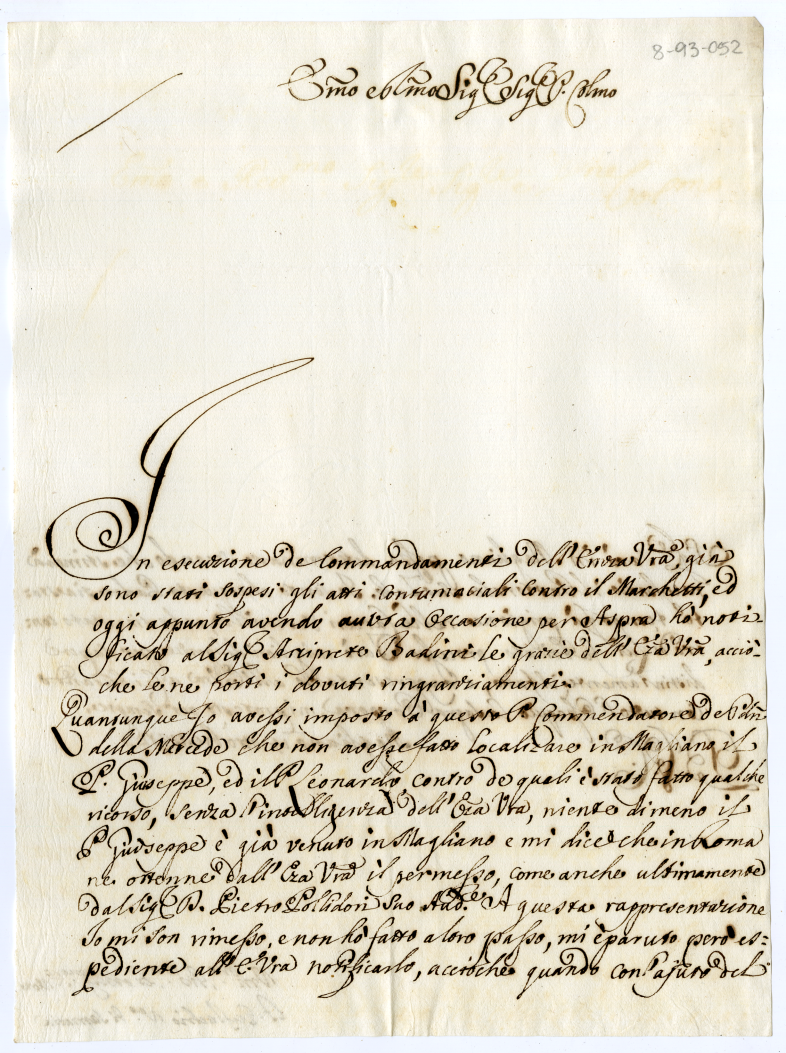 8-93-052
Emo e Rmo Sig.r Sig.r P. Colmo
In esecuzione de Commandamenti dell' Emza Vra, già
sono stati sospesi gli atti contumaciali contro il Marchetti, ed
oggi appunto avendo auuta occasione per Aspra hò noti-
ficato al Sig.r Arciprete Badini le grazie dell' Eza Vra, acciò-
che le ne porti i dovuti ringraziamenti.
Quantunque Io avessi imposto à questo P. Commendatore de Pdri
della Mercede che non avesse fatto localizare in Magliano il
P. Giuseppe, ed il P. Leonardo, contro de quali è stato fatto qualche
ricorso, senza l'intelligenza dell' Eza Vra, niente di meno il
P. Giuseppe è già venuto in Magliano e mi dice che in Roma
ne ottenne dall' Eza Vra il permesso, come anche ultimamente
dal Sig.r D. Pietro Pollidori suo Aud.re A questa rappresentazione
Io mi son rimesso, e non hò fatto altro passo, mi è paruto però es=
pediente all' E. Vra notificarlo, acciochè quando con l'ajuto del